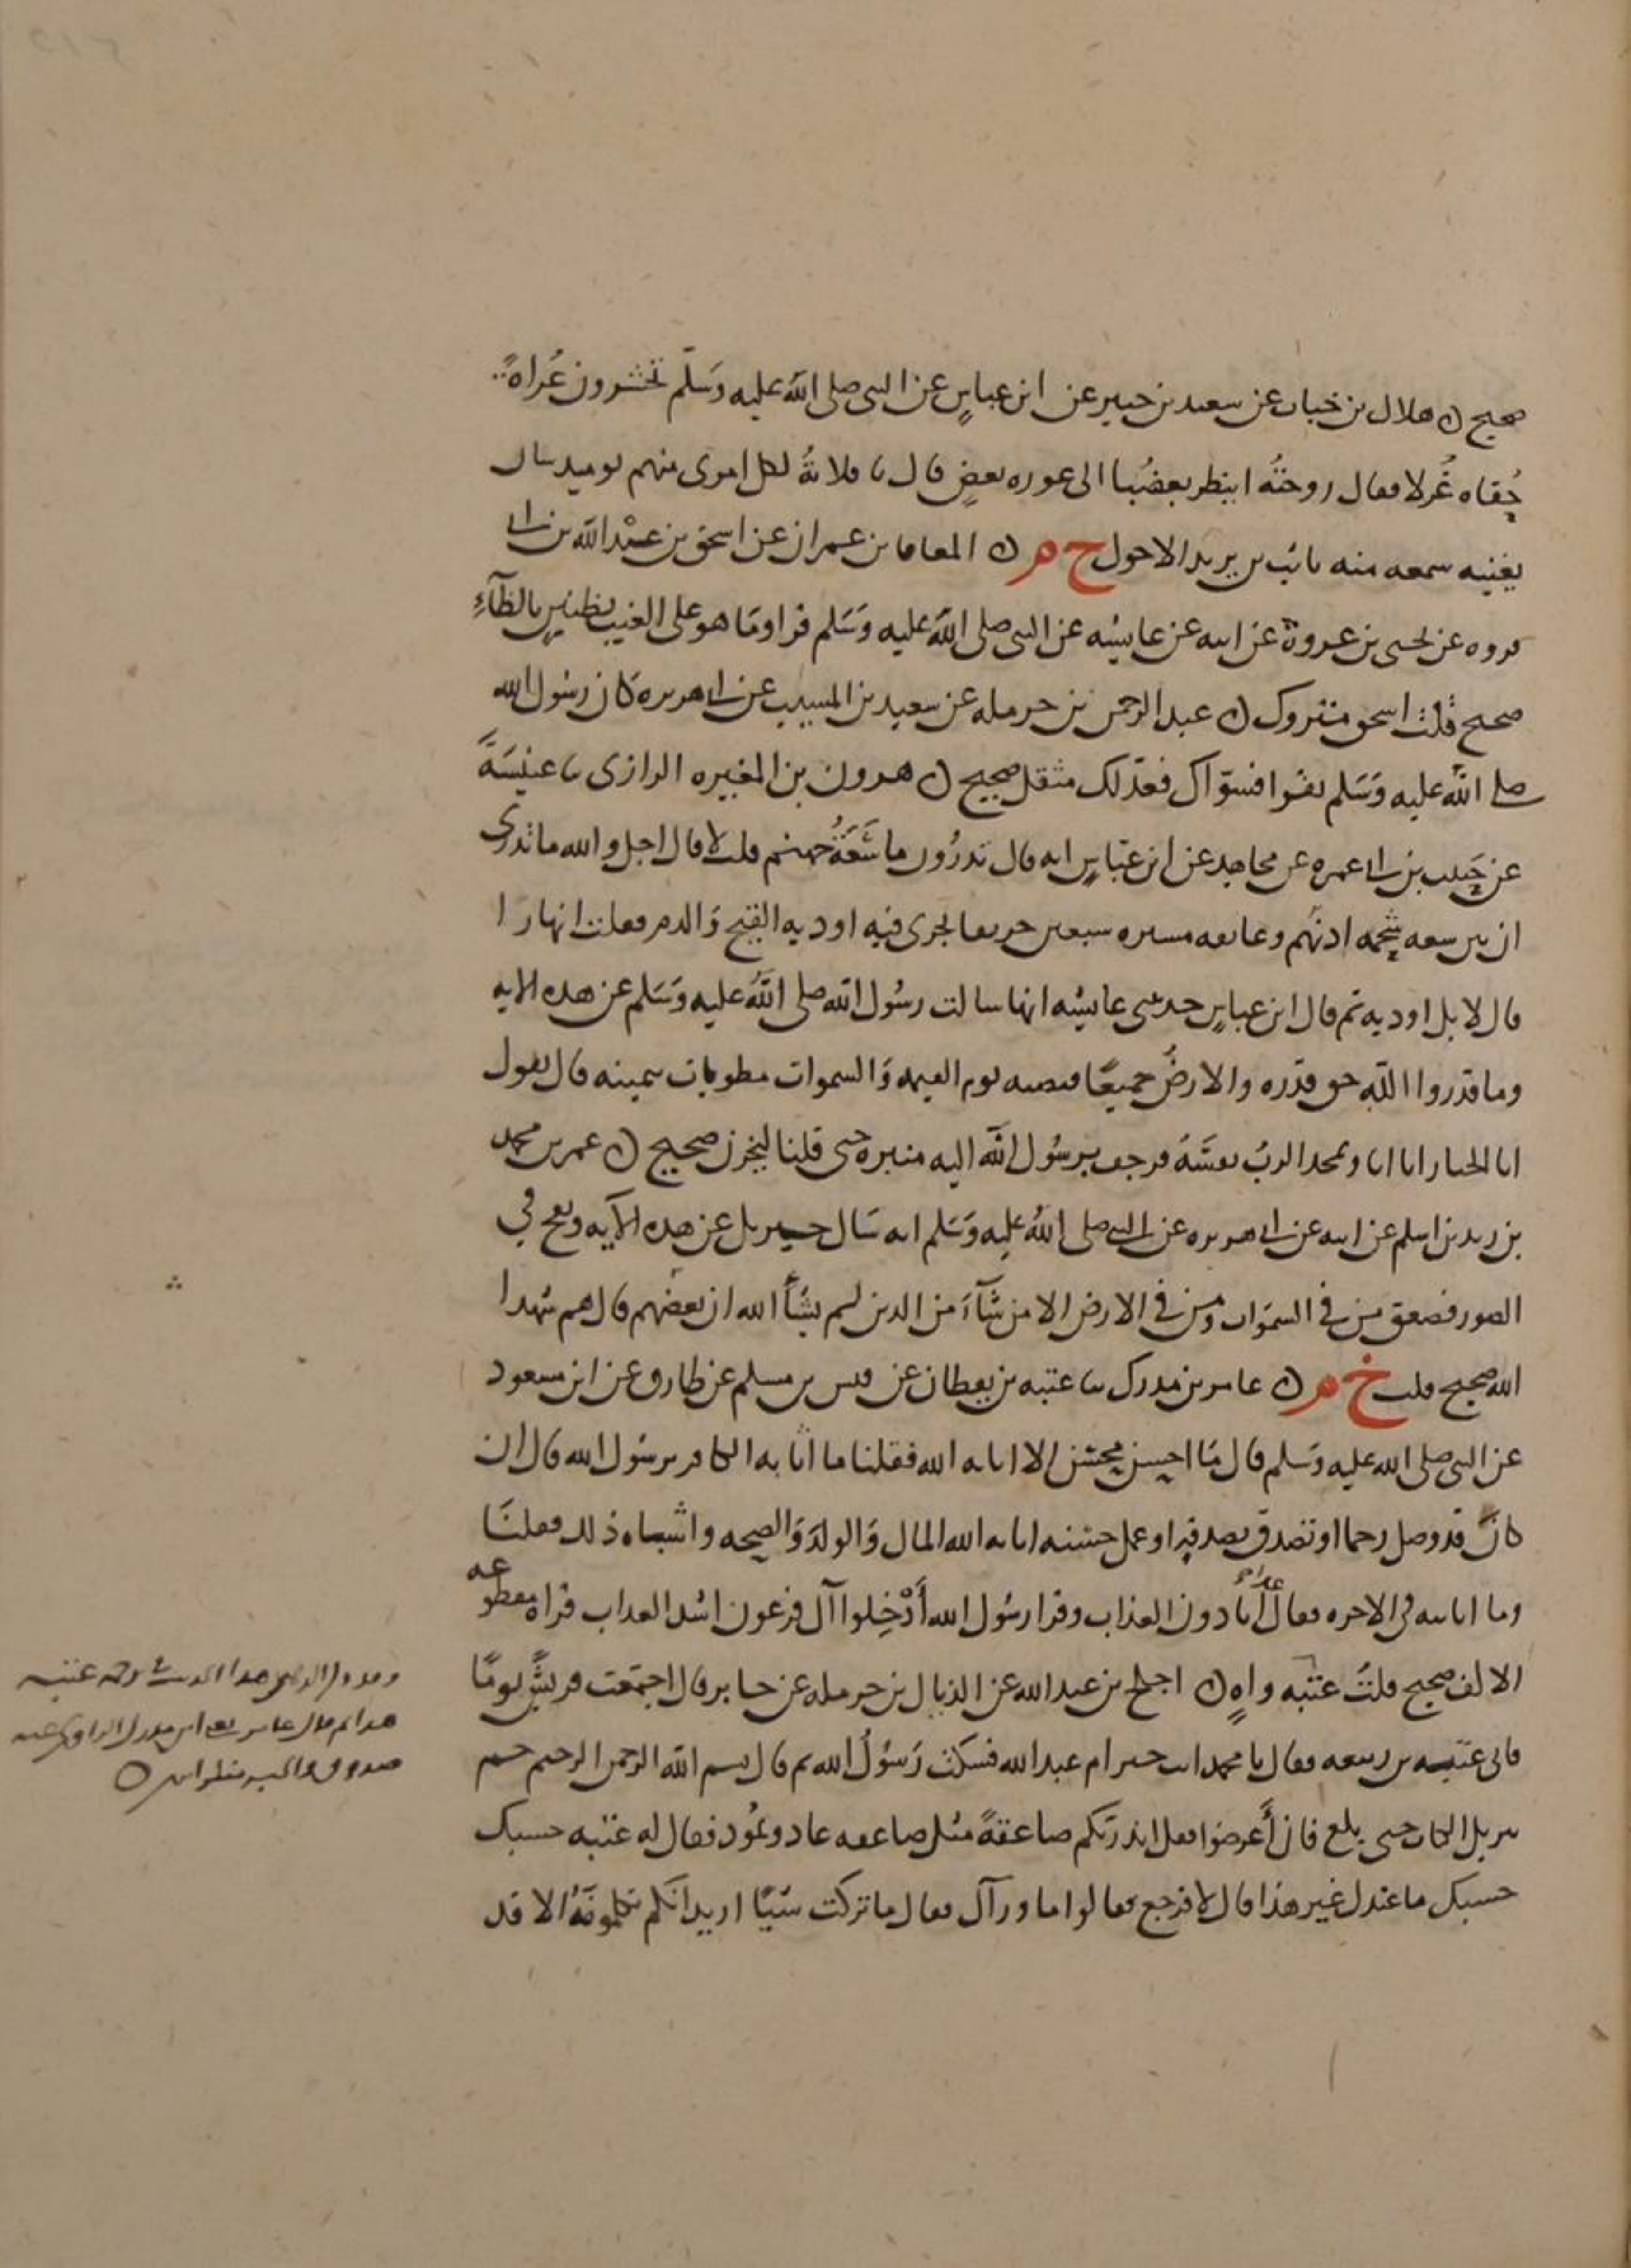 صحيح ن هلال بن خباب عن سعيد بن جبير عن ابن عباس عن النبي صلى الله عليه وسلم تحشرون عُراةً
حُفاه غُرلا فقال زوجتُه اينظر بعضُنا الى عوره بعضٍ قال يا فلانةُ لكل امرى منهم يوميد شان
يغنيه سمعه منه ثابت بن يزيد الاحول خ م ن المعافا بن عمران عن اسحق بن عبْد الله بن ابي
فروه عن يحيى بن عروة عن ابيه عن عايشه عن النبي صلى الله عليه وسلم قرا وما هو على الغيب بظنينٍ بالظآءِ
صحيح قلت اسحق متروك ن عبد الرحمن بن حرمله عن سعيد بن المسيب عن ابي هريره كان رسول الله
صلى الله عليه وسلم يقرا فسوّاك فعدّلك مثقل صحيح ن هرون بن المغيره الرازى ثنا عنبسَةَ
عن حَبيب بن ابي عمره عن مجاهد عن ابن عبّاسٍ انه قال تدرُون ما سَعَةُ جهنم قلت لا قال اجل والله ما تدرى
ان بين سعه شحمه اذنهم وعاتقه مسيره سبعين خريفا يجرى فيه اوديه القيح والدم فقلت انهارا
قال لا بل اوديه ثم قال ابن عباسٍ حدثتني عايشه انها سالت رسُول الله صلى الله عليه وسلم عن هذه الايه
وما قدروا الله حق قدره والارضُ جميعًا قبضته يوم القيمه والسموات مطويات بيمينه قال يقول
انا الجبار انا انا ويمجد الربُ نفسَهُ فرجف برسُول الله اليه منبره حتى قلنا ليخرن صحيح ن عمر بن محمد
بن زيد بن اسلم عن ابيه عن ابي هريره عن النبي صلى الله عليه وسلم انه سَال جبريل عن هذه الآيه ونفخ في
الصور فصعق من في السموات ومن في الارض الا من شآءَ من الدين لم يشأ الله ان بعضهم قال هم شهدا
الله صحيح قلت خ م ن عامر بن مدرك ثنا عتبه بن يقظان عن قيس بن مسلم عن طارق عن ابن مسعود
عن النبي صلى الله عليه وسلم قال ما احسن محسن الا اثابه الله فقلنا ما اثابه الكافر يرسُول الله قال ان
كانَ قد وصل رحما او تصدق بصدقهٍ او عمل حسنه اثابه الله المال والولدَ والصحه واشباه ذلك فقلنَا
وما اثابه في الاخره فقال عذابًا دون العذاب وقرا رسُول الله أَدْخِلوا آل فرعون اشد العذاب قراه مقطوعه
الالف صحيح قلتُ عتبه واهٍ ن اجلح بن عبد الله عن الذيال بن حرمله عن جابر قال اجتمَعت قريشٌ يومًا
فاتى عتبه بن ربيعه فقال يا محمد انت خير ام عبد الله فسكت رَسُولُ الله ثم قال بسم الله الرحمن الرحيم حم
تنزيل الكتاب حتى بلغ فان أعرضوا فقل انذرتكم صاعقةً مثل صاعقه عاد وثمُود فقال له عتبه حسبك
حسبك ما عندك غير هذا قال لا فرجع فقالوا ما ورآك فقال ما تركت شيًا اريد انكم تكلمونَهُ الا قد
هذا ثم قال عامر يعني ابن مدرك الراوي عنه
صدوق والخبر منكر ن